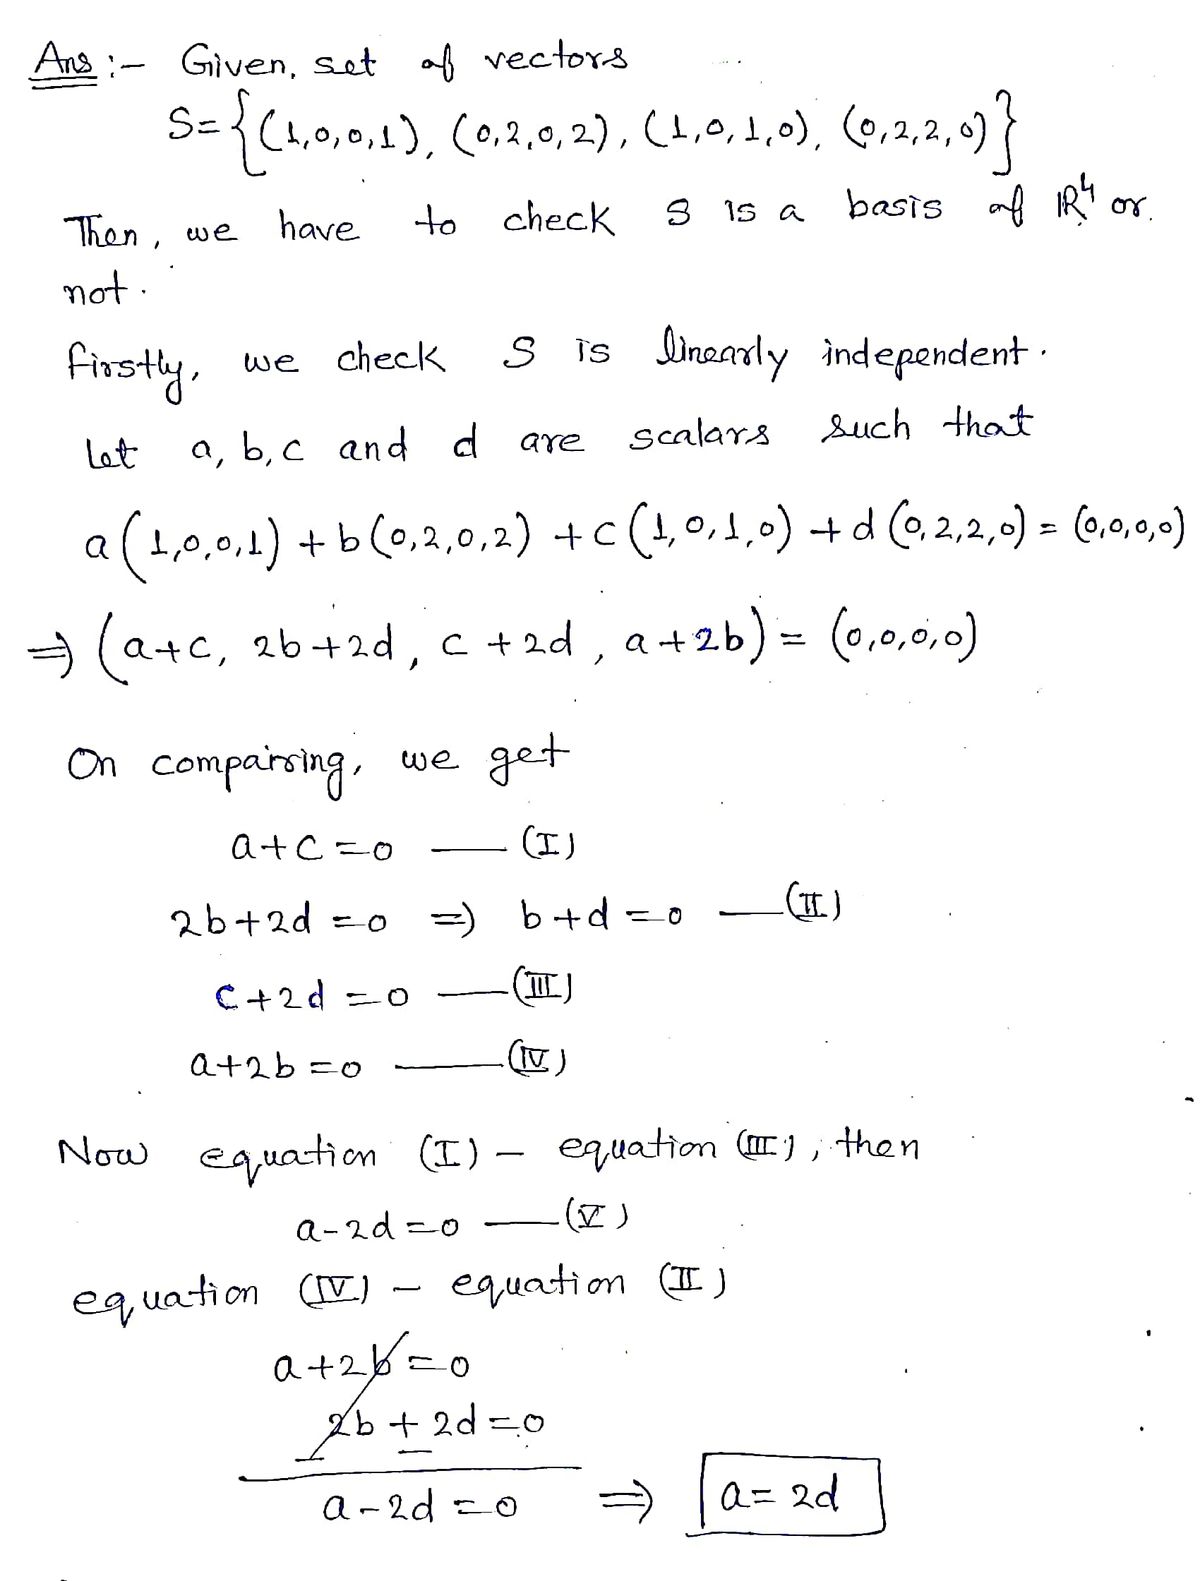 Ans :- Given, set of vectors
S={(1,0,0,1), (0,2,0,2), (1,0,1,0), (0,2,2,0)}
Then, we have to check S is a basis of ℝ⁴ or
not.
firstly, we check S is linearly independent.
Let a, b, c and d are scalars such that
a(1,0,0,1) + b(0,2,0,2) + c(1,0,1,0) + d(0,2,2,0) = (0,0,0,0)
⇒ (a+c, 2b+2d, c+2d, a+2b) = (0,0,0,0)
On compairing, we get
a+c=0 —— (I)
2b+2d=0 ⇒ b+d=0 —— (II)
c+2d=0 —— (III)
a+2b=0 —— (IV)
Now equation (I) - equation (III), then
a-2d=0 —— (V)
equation (IV) - equation (II)
a+2b=0
2b+2d=0
a-2d=0 ⇒ a=2d